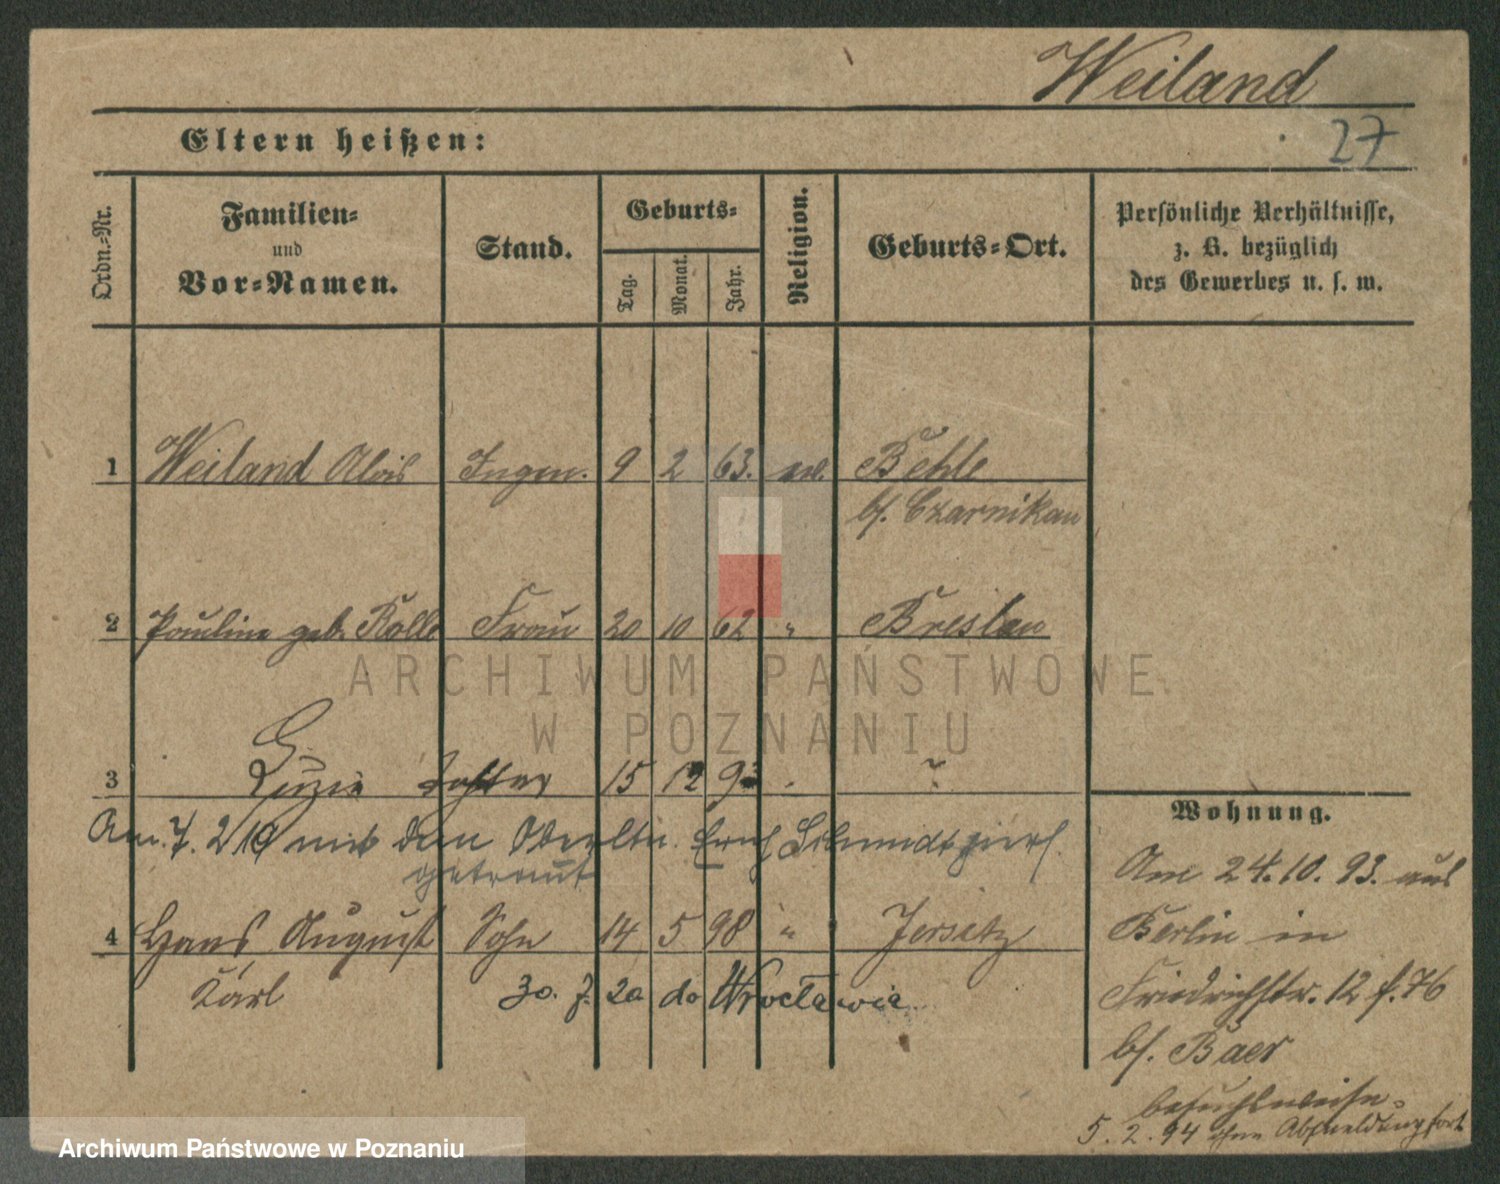 Weiland
27
Eltern heißen:
Ordn.-Nr.
Familien-
und
Vor-Namen.
Stand.
Geburts-
Tag.
Monat.
Jahr.
Religion.
Geburts-Ort.
Persönliche Verhältnisse,
z. B. bezüglich
des Gewerbes u. s. w.
1 Weiland Alois Ingen. 9 2 63. Behle
bf. Czarnikau
2 Pauline geb. Rolle Frau 20 10 62 " Breslau
3 Tochter 15 12 93
Am 7. 2 19 mit dem Oberltn. Erich Schmidt
getraut
4 Hans August Sohn 14 5 98 " Jersitz
Karl
30. 7. 20 do Wrocławia
Wohnung.
Am 24. 10. 93. aus
Berlin in
Friedrichstr. 12 f. 76
bf. Baer
besuchsweise
5. 2. 94 ohne Abmeldung fort
ARCHIWUM PAŃSTWOWE
W POZNANIU
Archiwum Państwowe w Poznaniu